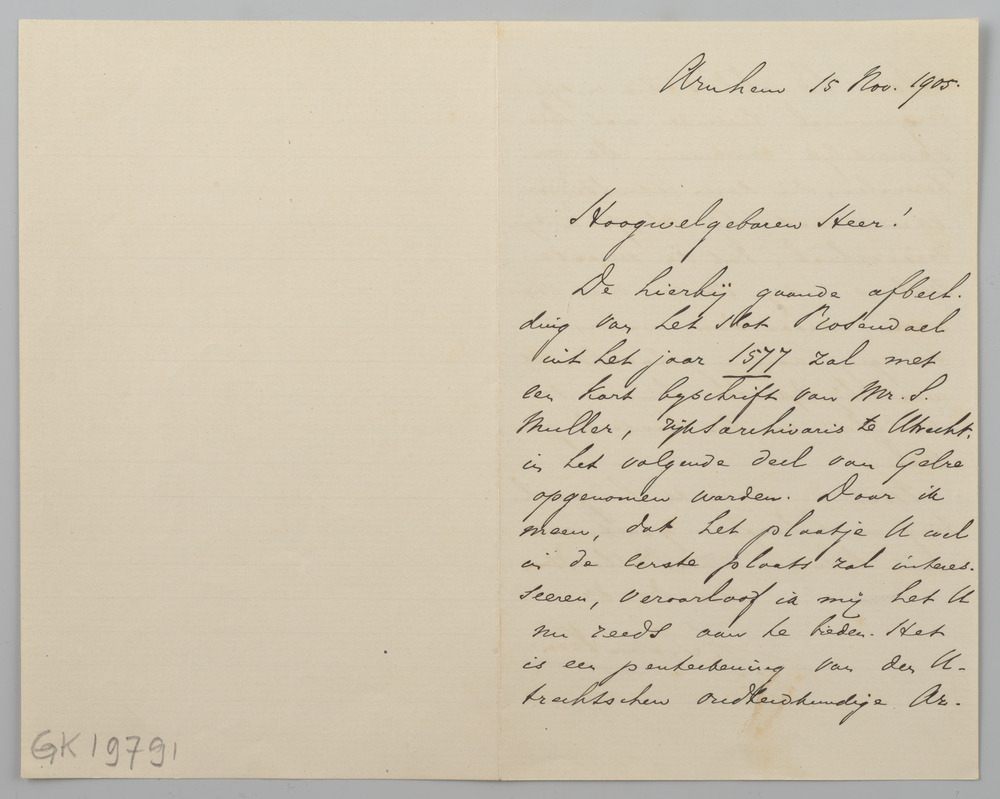 Arnhem 15 Nov. 1905.
Hoogwelgeboren Heer!
De hierbij gaande afbeel-
ding van het slot Rosendael
uit het jaar 1577 zal met
een kort byschrift van Mr. S.
Muller, rijksarchivaris te Utrecht,
in het volgende deel van Gelre
opgenomen worden. Daar ik
meen, dat het plaatje U wel
in de eerste plaats zal interes-
seeren, veroorloof ik mij het U
nu reeds aan te bieden. Het
is een penteekening van den U-
trechtschen oudheidkundige Ar-
GK19791